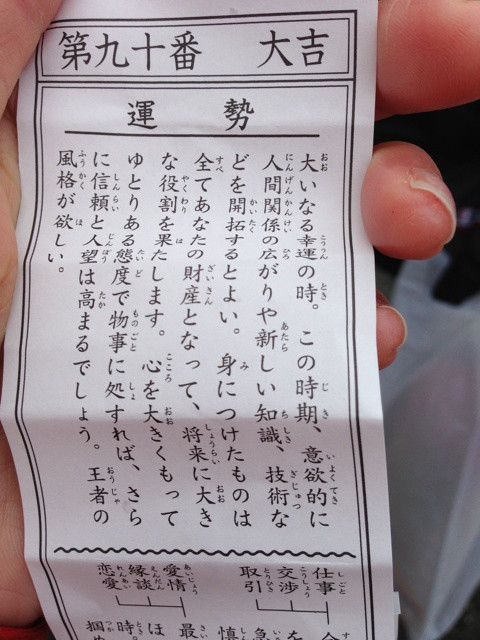 第九十番　大吉
運勢
大いなる幸運の時。この時期、意欲的に
人間関係の広がりや新しい知識、技術な
どを開拓するとよい。身につけたものは
全てあなたの財産となって、将来に大き
な役割を果たします。心を大きくもって
ゆとりある態度で物事に処すれば、さら
に信頼と人望は高まるでしょう。王者の
風格が欲しい。
仕事
交渉
取引
を
急
慎
愛情
縁談
恋愛
最
ほ
時。
掴